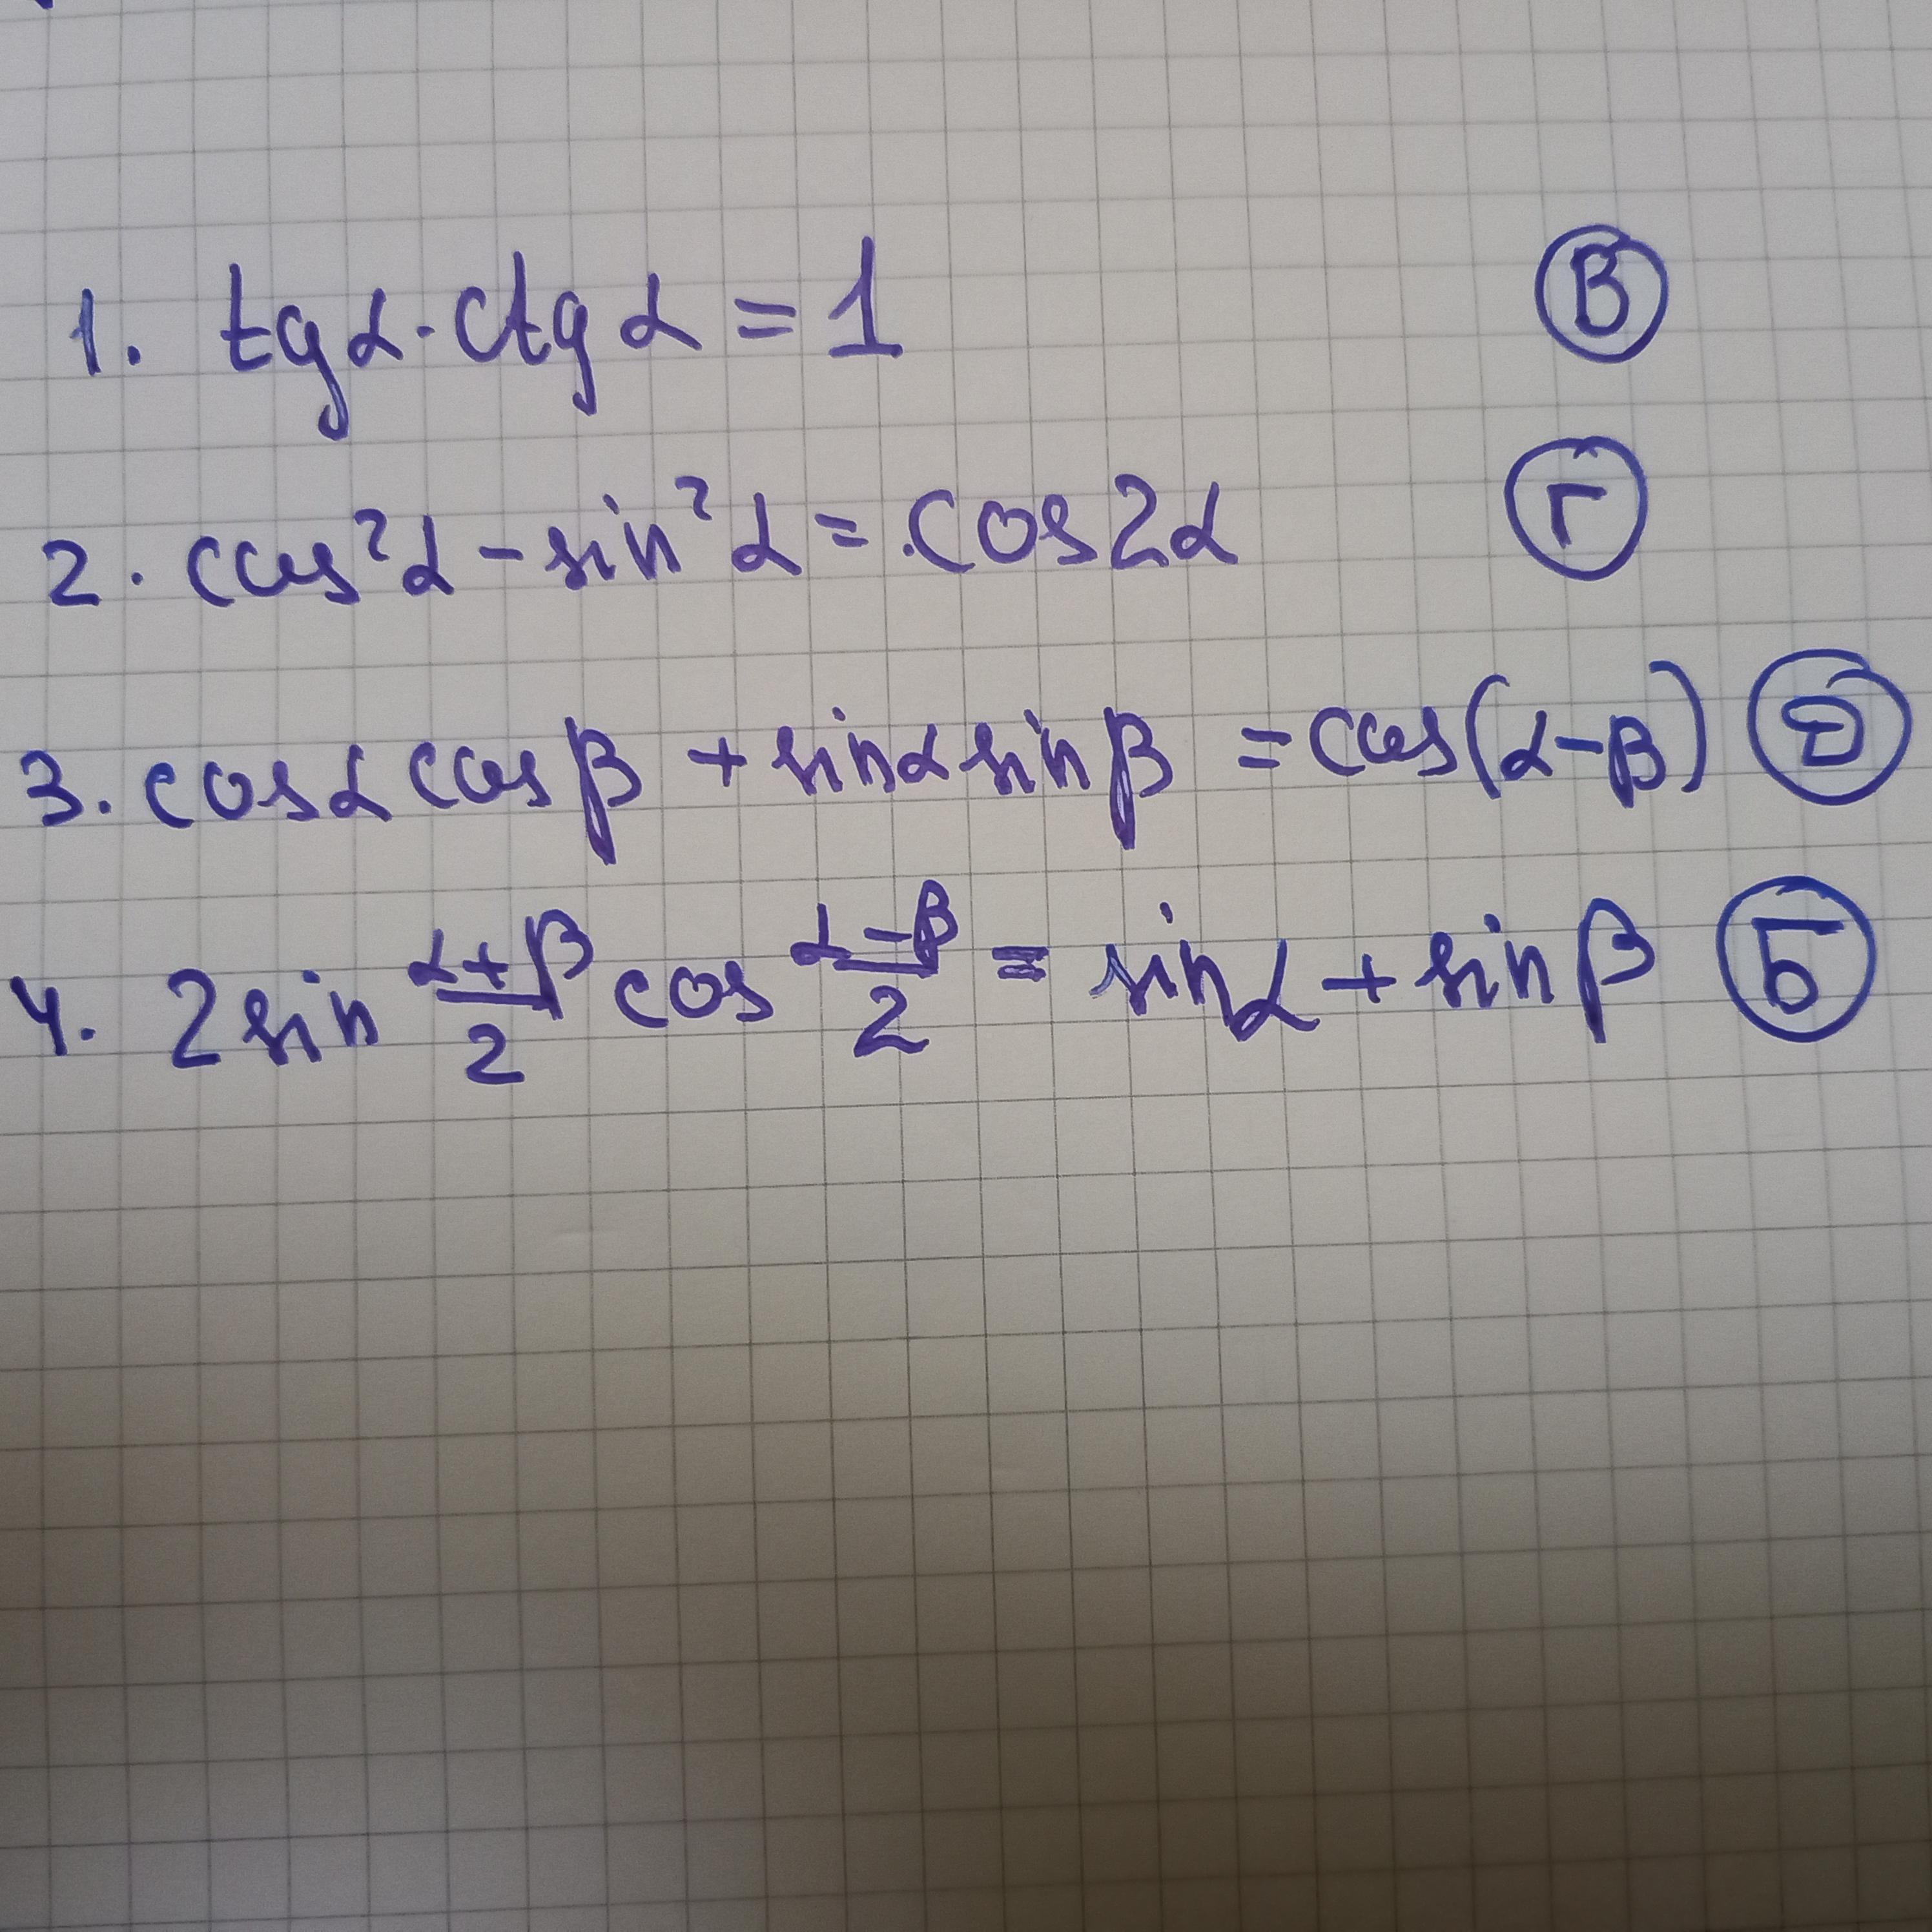 1. tgα·ctgα = 1 В
2. cos²α - sin²α = cos2α Г
3. cosα cosβ + sinα sinβ = cos(α-β) Д
4. 2sin (α+β)/2 cos (α-β)/2 = sinα + sinβ Б